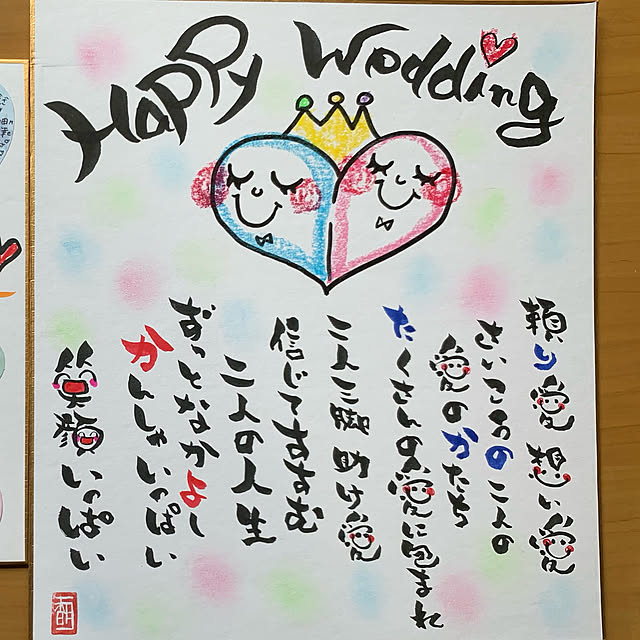 Happy Wedding
頼り愛 想い愛
さいころの二人の
愛のかたち
たくさんの愛に包まれ
二人三脚 助け愛
信じてすすむ
二人の人生
ずっとなかよし
かんしゃいっぱい
笑顔いっぱい